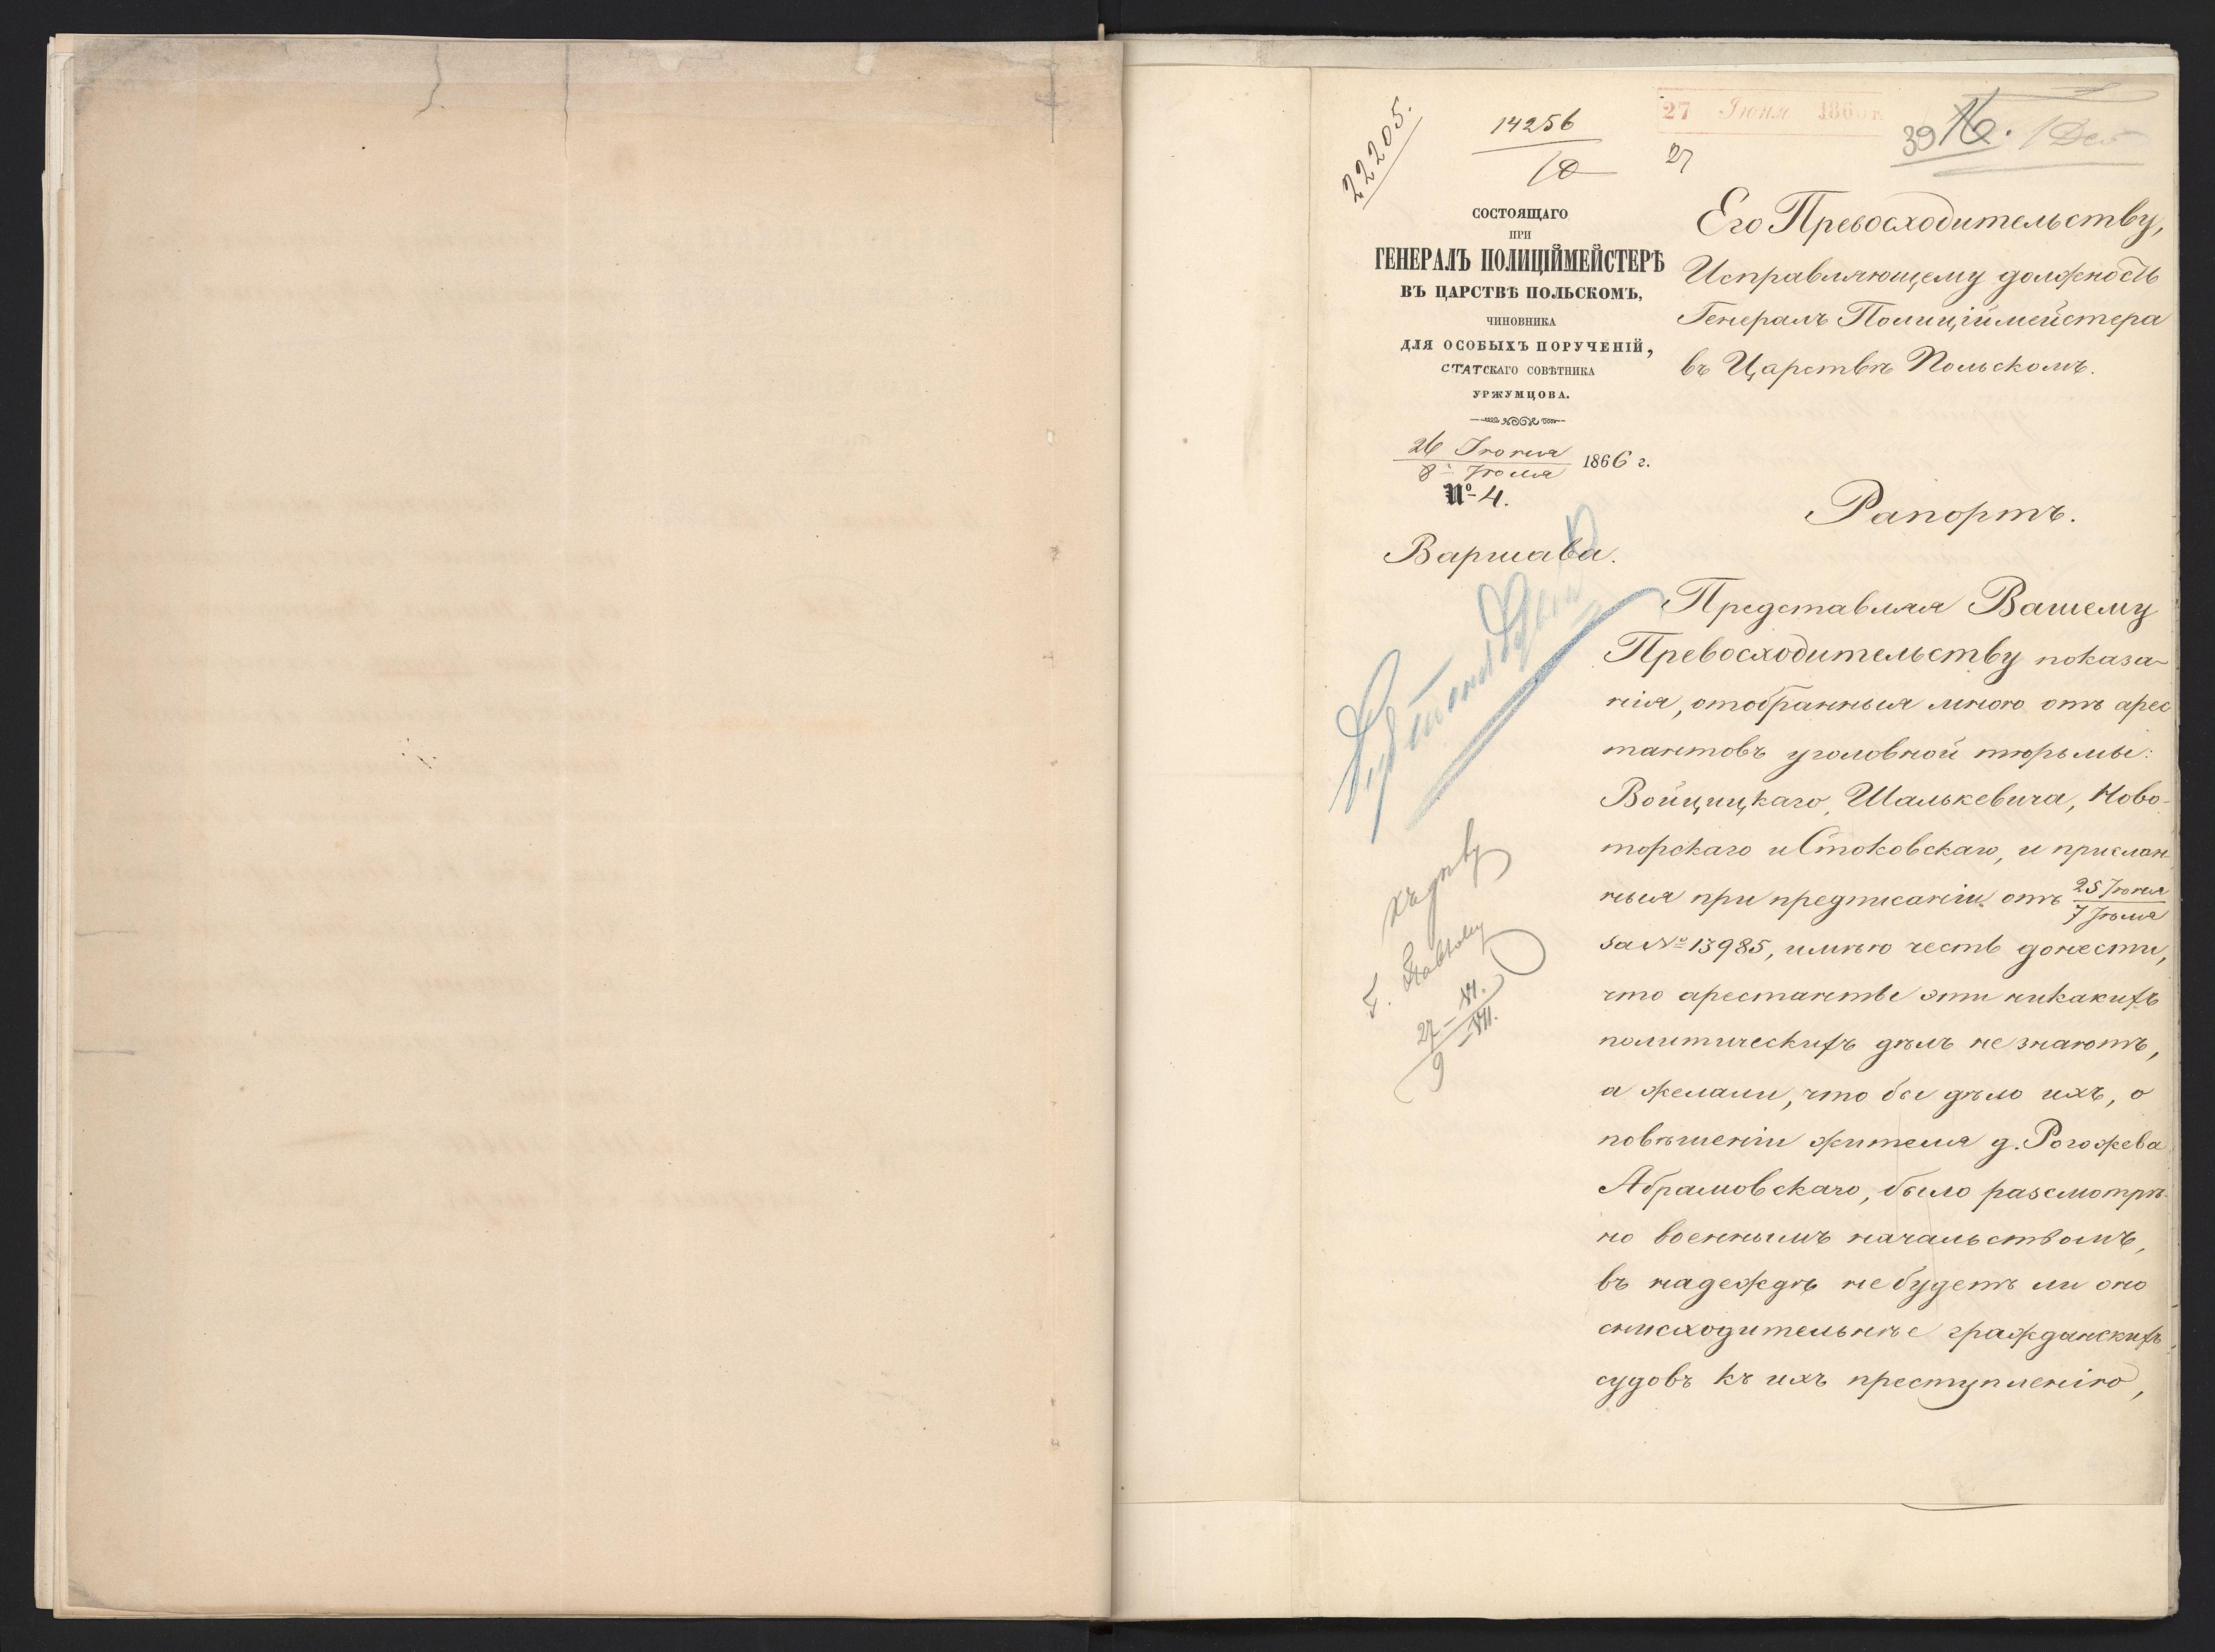 22205.
14256
10
27 Июня 1866 г.
27
39 16.
СОСТОЯЩАГО
ПРИ
ГЕНЕРАЛЪ ПОЛИЦІЙМЕЙСТЕРѢ
ВЪ ЦАРСТВѢ ПОЛЬСКОМЪ,
ЧИНОВНИКА
ДЛЯ ОСОБЫХЪ ПОРУЧЕНІЙ,
СТАТСКАГО СОВѢТНИКА
УРЖУМЦОВА.
26 Іюня
8 Іюля 1866 г.
№ 4.
Варшава.
Его Превосходительству,
Исправляющему должность
Генералъ Полиціймейстера
въ Царствѣ Польскомъ.
Рапортъ.
Представляя Вашему
Превосходительству показа-
нія, отобранныя мною отъ арес
тантовъ уголовной тюрьмы:
Войцицкаго, Шалькевича, Ново-
торскаго и Стоковскаго, и прислан-
ныя при предписаніи отъ 25 Іюня
7 Іюля
за № 13985, имѣю честь донести,
что арестанты эти никакихъ
политическихъ дѣлъ не знаютъ,
а желали, что бы дѣло ихъ, о
повѣшеніи жителя д. Рогожева
Абрамовскаго, было разсмотрѣ-
но военнымъ начальствомъ,
въ надеждѣ не будетъ ли оно
снисходительнѣе гражданскихъ
судовъ къ ихъ преступленію,
къ дѣлу
27 - VI.
9 - VII.